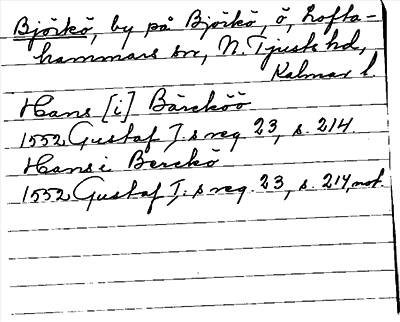 Björkö, by på Björkö, ö, Lofta-
hammars sn, N. Tjusts hd,
Kalmar l.
Hans [i] Bärcköö
1552 Gustaf I:s reg 23, s. 214.
Hans i Berckö
1552 Gustaf I:s reg. 23, s. 214, not.